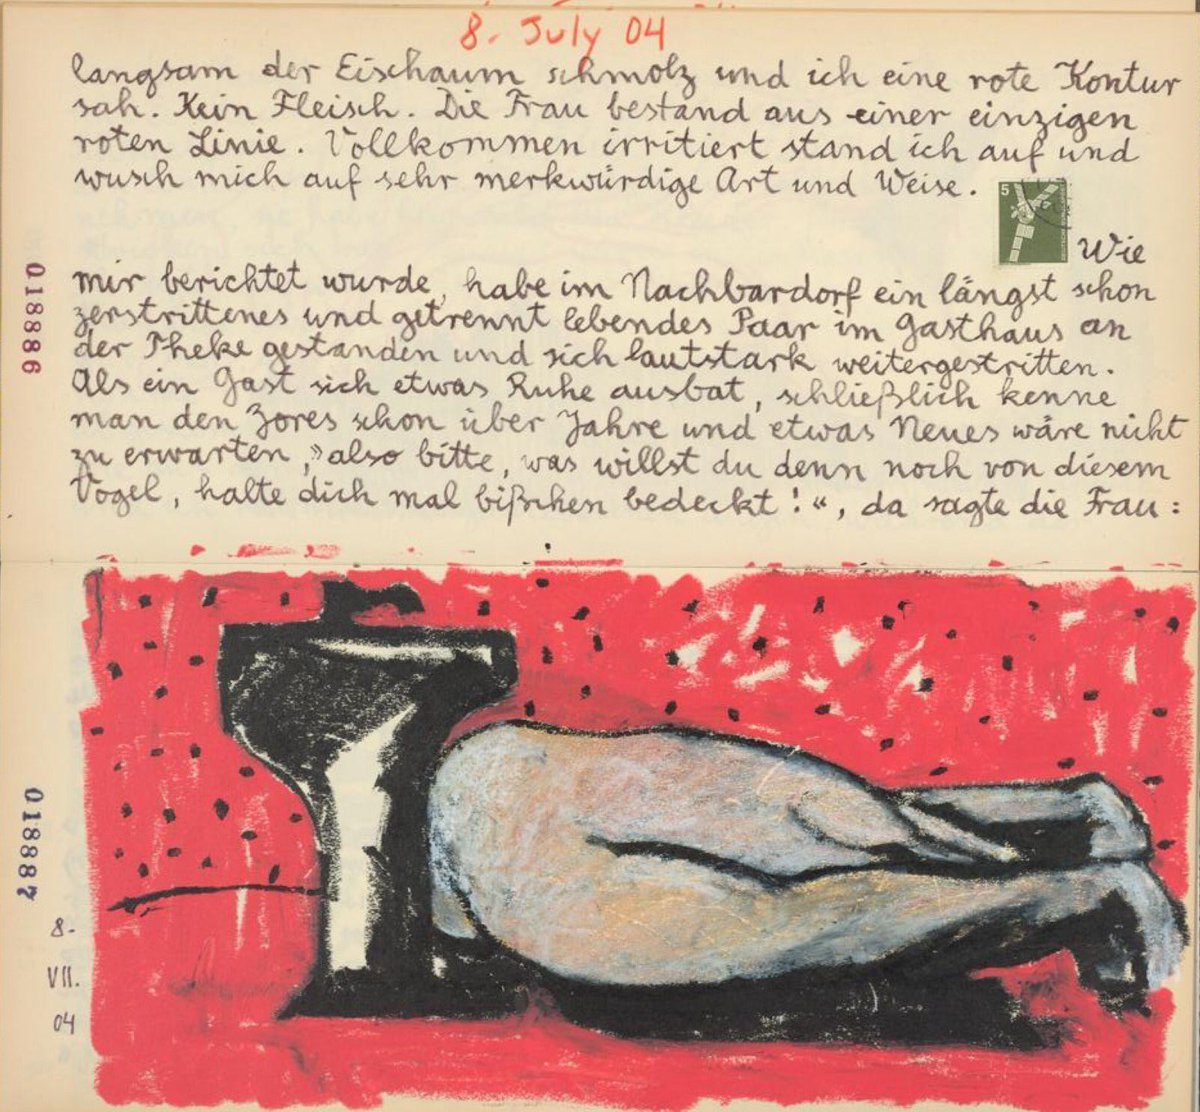 8. July 04
langsam der Eischaum schmolz und ich eine rote Kontur
sah. Kein Fleisch. Die Frau bestand aus einer einzigen
roten Linie. Vollkommen irritiert stand ich auf und
wusch mich auf sehr merkwürdige Art und Weise.
5
Wie
mir berichtet wurde, habe im Nachbardorf ein längst schon
zerstrittenes und getrennt lebendes Paar im Gasthaus an
der Theke gestanden und sich lautstark weitergestritten.
Als ein Gast sich etwas Ruhe ausbat, schließlich kenne
man den Zores schon über Jahre und etwas Neues wäre nicht
zu erwarten, »also bitte, was willst du denn noch von diesem
Vogel, halte dich mal bißchen bedeckt!“, da sagte die Frau:
018886
018887
8.
VII.
04